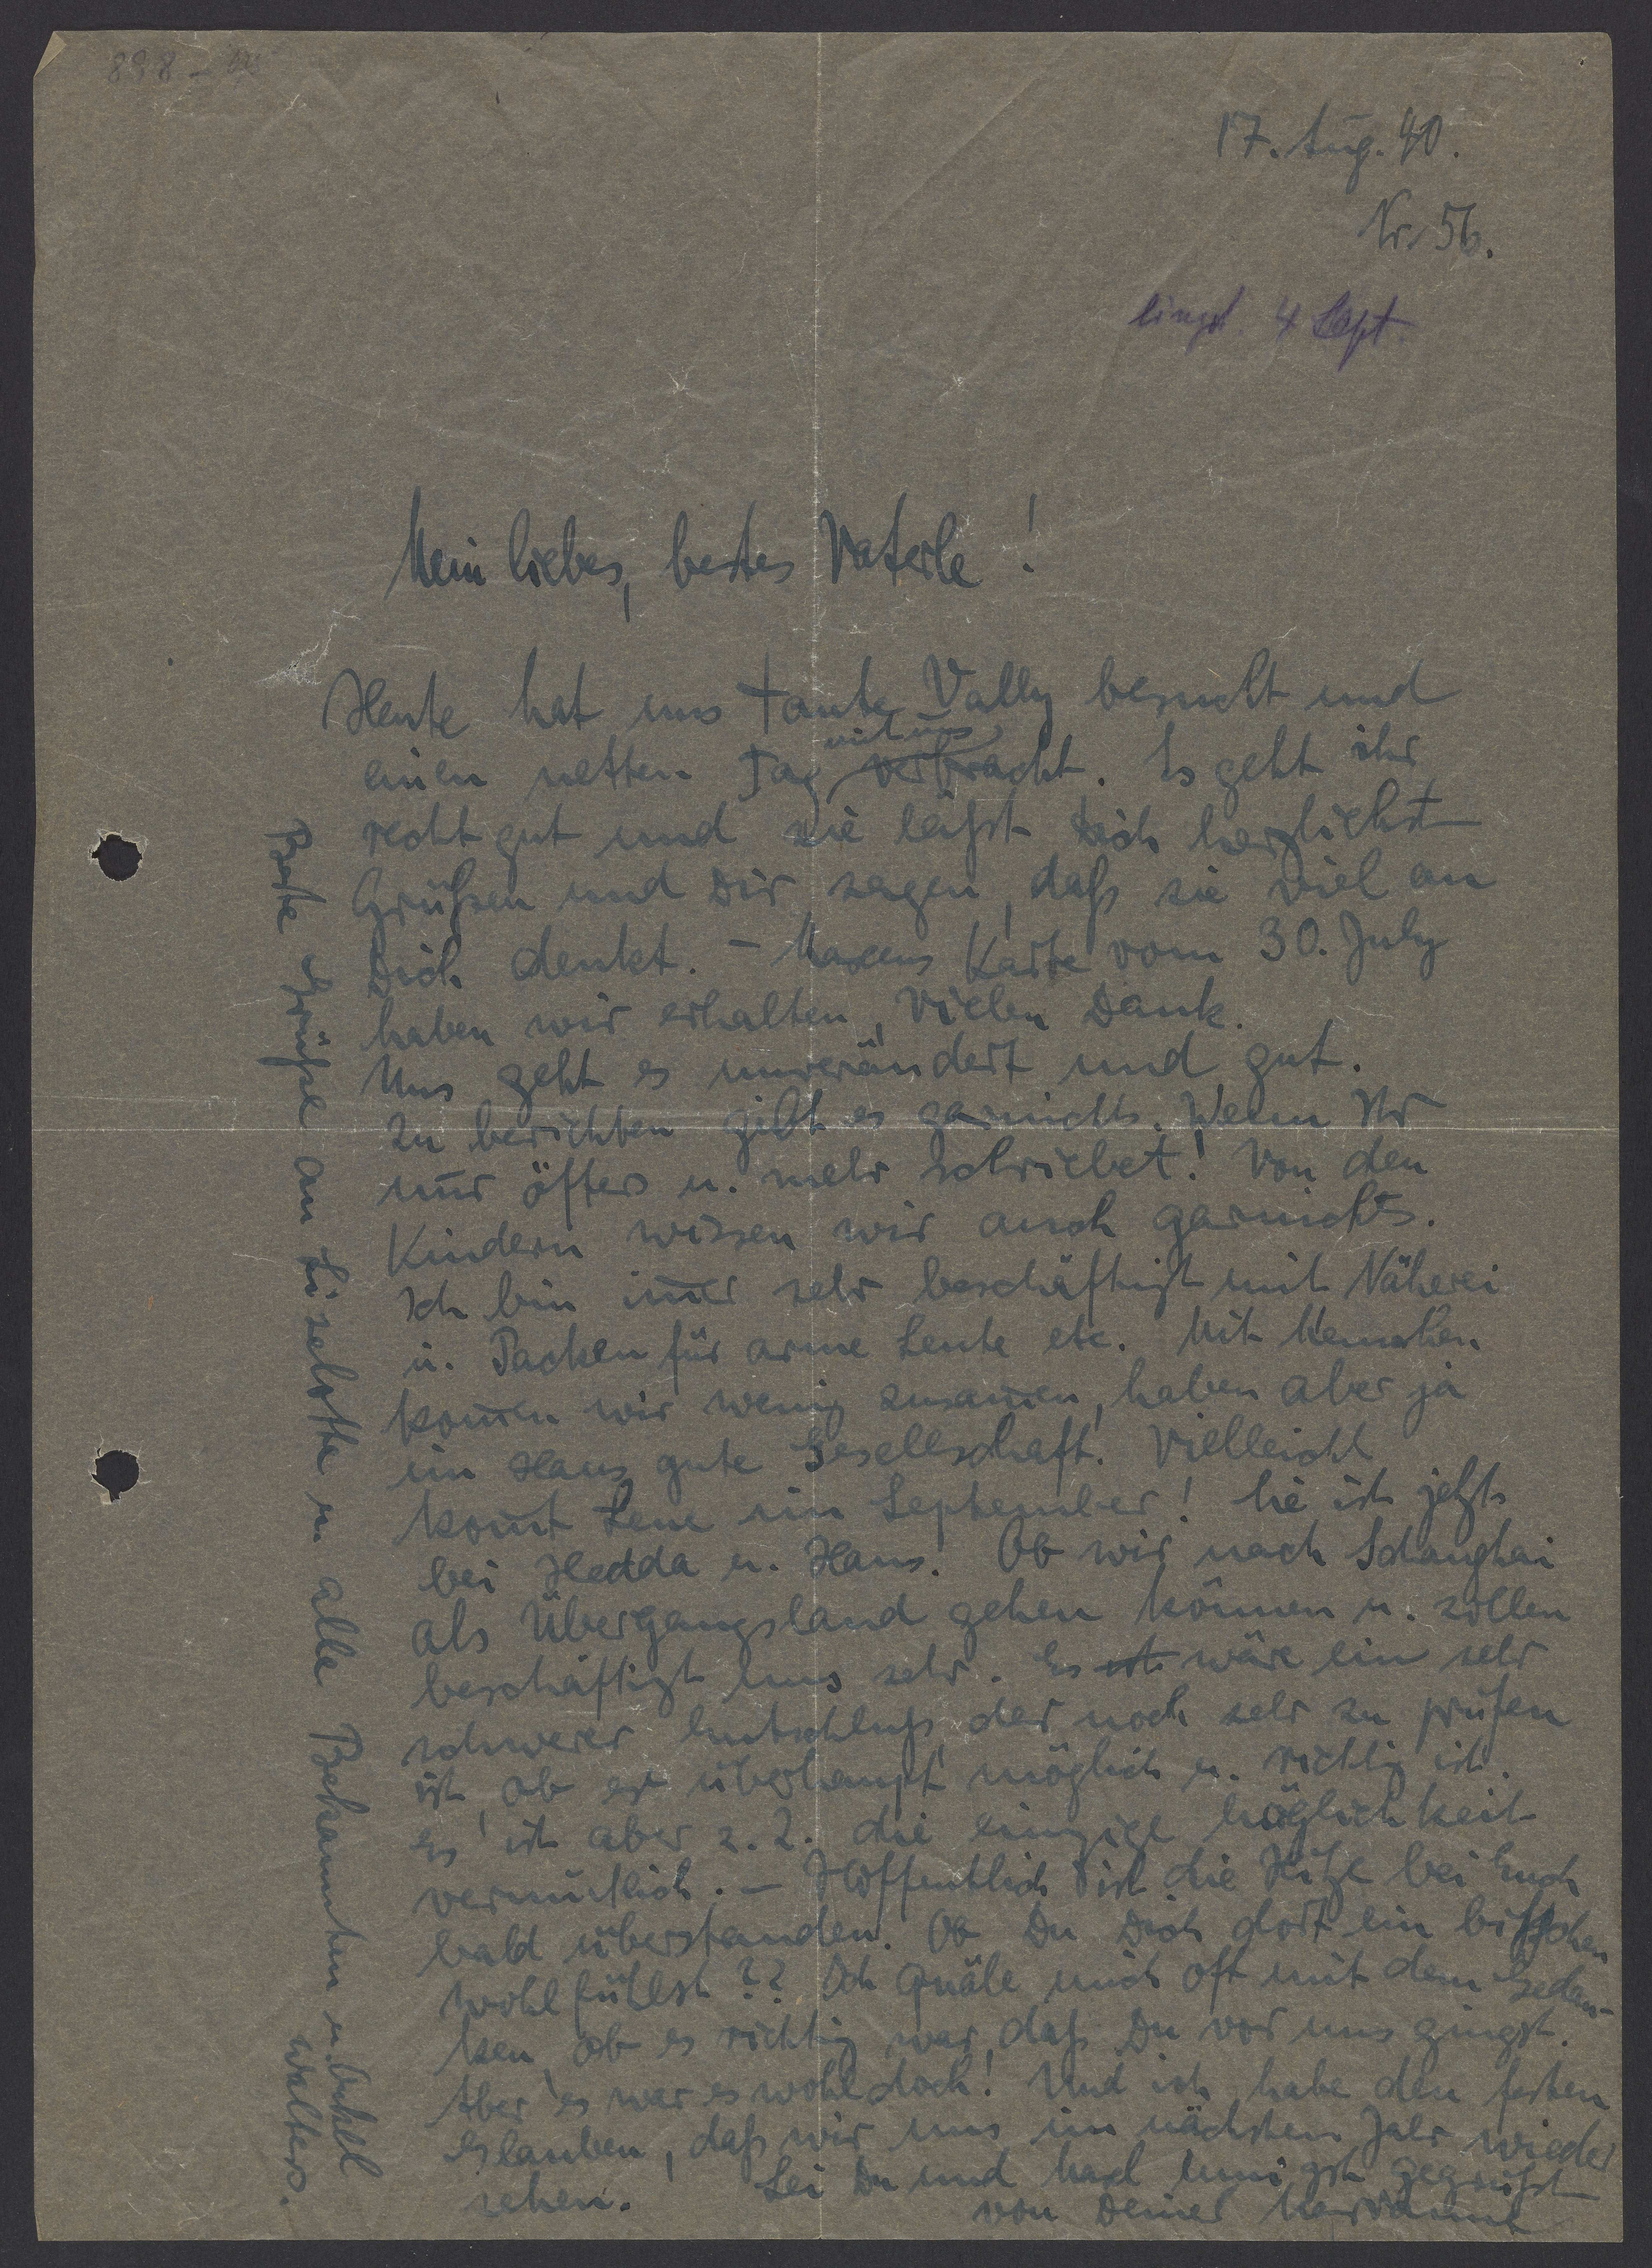 888 -
17. Aug. 40.
Nr. 56.
4 Sept.
Mein liebes, bestes Vaterle!
Heute hat uns Tante Vally besucht und
einen netten Tag mit uns verbracht. Es geht ihr
recht gut und sie läßt Dich herzlichst
Grüßen und Dir sagen, daß sie viel an
Dich denkt. – Maxens Karte vom 30. July
haben wir erhalten, Vielen Dank.
Uns geht es unverändert und gut.
Zu berichten gibt es garnichts. Wenn Ihr
nur öfters u. mehr schriebet! Von den
Kindern wissen wir auch garnichts.
Ich bin im̄er sehr beschäftigt mit Näherei
u. Packen für arme Leute etc. Mit Menschen
kom̄en wir wenig zusam̄en, haben aber ja
im Haus gute Gesellschaft. Vielleicht
kom̄t Lene im September! Sie ist jetzt
bei Hedda u. Hans. Ob wir nach Schanghai
als Übergangsland gehen können u. sollen
beschäftigt uns sehr. Es ist wäre ein sehr
schwerer Entschluß, der noch sehr zu prüfen
ist, ob er überhaupt möglich u. richtig ist.
Es ist aber z. Z. die einzige Möglichkeit
vermutlich. – Hoffentlich ist die Hitze bei Euch
bald überstanden. Ob Du Dich dort ein bißchen
wohlfühlst?? Ich quäle mich oft mit dem Gedan-
ken, ob es richtig war, daß Du vor uns gingst.
Aber es war es wohl doch! Und ich habe den festen
Glauben, daß wir uns im nächsten Jahr wieder
sehen. Sei Du und Maxl innigst gegrüßt
von Deiner Marianne
Beste Grüße an Liselotte u. alle Bekannten u. Onkel
Walters.